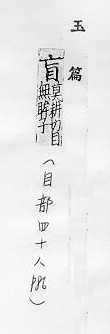 玉篇
盲莫耕切目
無眸子
(目部四十八 )